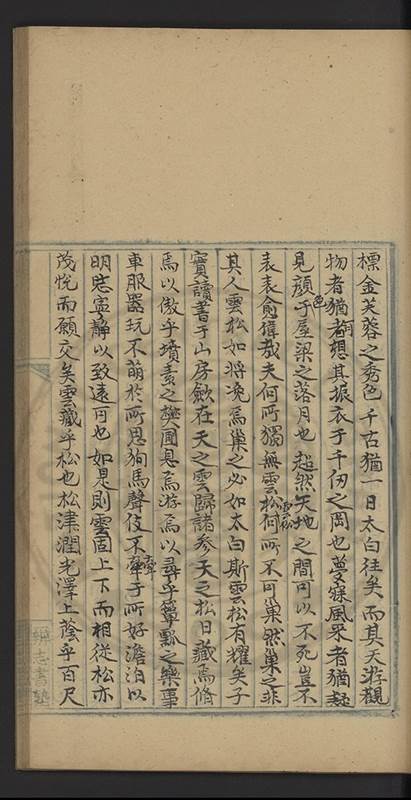 標金芙蓉之秀色千古猶一日太白往矣而其天游觀
物者猶可想其振衣于千仞之岡也夢寐風采者猶疑
見顏色于屋梁之落月也超然天地之間可以不死豈不
表表愈偉哉夫何所獨無雲松何所不可巢然巢之非
其人雲松如將浼焉巢之必如太白斯雲松有耀矣子
實讀書于山房歛在天之雲歸諸參天之松日藏焉脩
焉以傲乎墳素之樊圃息焉游焉以尋乎簞瓢之樂事
車服器玩不萌於所思狗馬聲伎不牽于所好澹泊以
明志寧靜以致遠可也如是則雲固上下而相從松亦
茂悅而願交矣雲藏乎松也松津潤光澤上蔭乎百尺